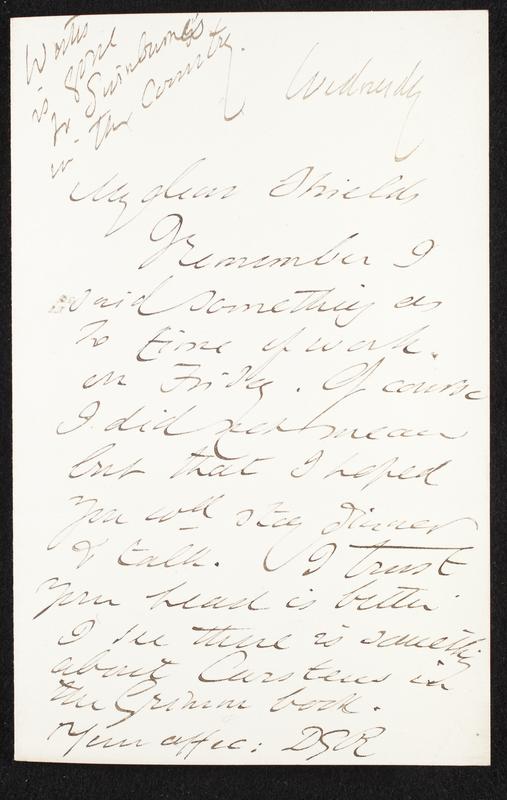 Watts
is gone
to Swinburne's
in the Country.
Wednesday
My dear Shields
I remember I
said something as
to time of work
on Friday. Of course
I did not mean
but that I hoped
you wd. stay dinner
& talk. I trust
your head is better
I see there is something
about Carstens in
the Grimm book.
Your affec: DGR